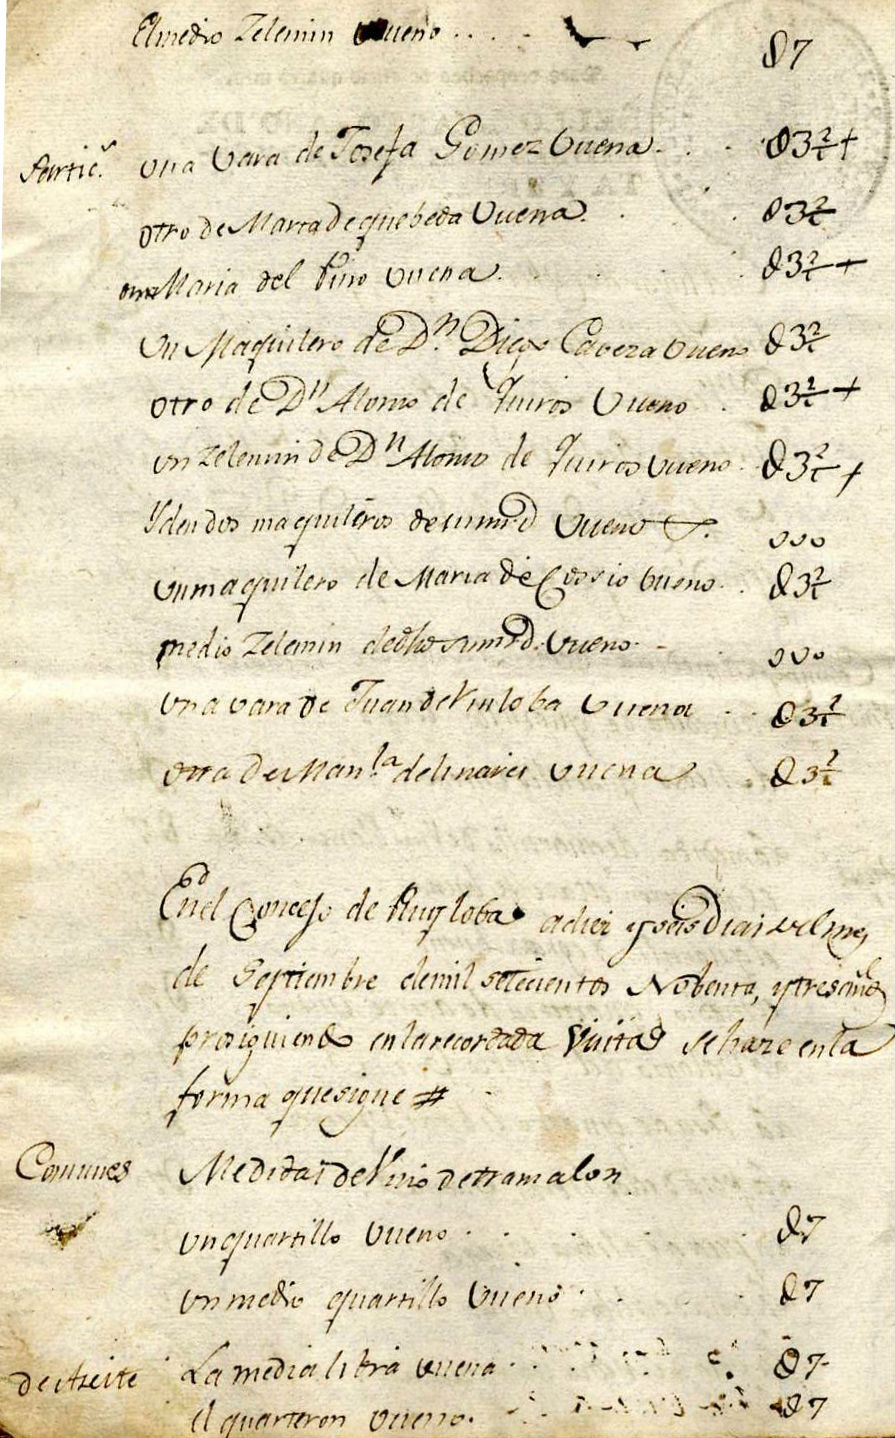 El medio Zelemin Vueno . . . 87
Partic.s una Vara de Josefa Gomez Vuena . . 83½ +
otro de Maria de quebeda Vuena . . 83½
otra Maria del Pino Vuena . . 83½ +
Un Maquilero de Dn. Diego Caveza Vueno 83½
otro de Dn Alonso de Quiros Vueno . 83½ +
un zelemin de Dn Alonso de Quiros Vueno . 83½ +
Yden dos maquileros de su mrd Vueno s. ooo
un maquilero de Maria de Cossio bueno . . 83½
medio Zelemin de dho su mrd. Vueno . ooo
una vara de Juan de Viloba Vuena . . 83½
otra de Manla de linares Vuena . 83½
En el Conzejo de Ruyloba a diez y seis Dias del mes
de Septiembre de mil setecientos Nobenta, y tres años
prosiguiendo en la recordada Visita se haze en la
forma que sigue #
Comunes Medidas de Vino de tramalon
un quartillo Vueno . . 87
un medio quartillo Vueno . . 87
de Azeite La media libra Vuena . . 87
el quarteron Vueno . 87